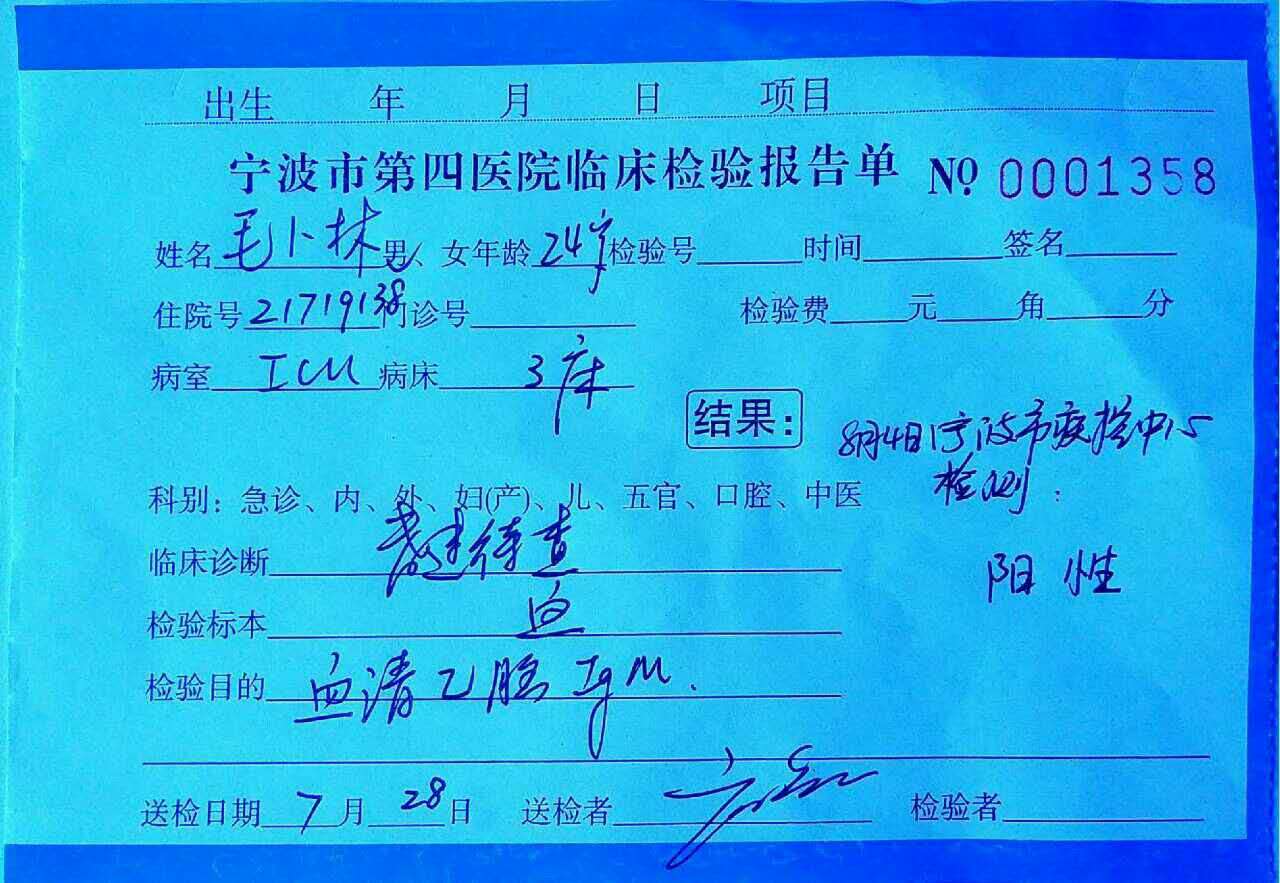 出生 年 月 日 项目
宁波市第四医院临床检验报告单 № 0001358
姓名 毛卜林 男、女 年龄 24岁 检验号 时间 签名
住院号 21719138 门诊号 检验费 元 角 分
病室 ICU 病床 3床
结果: 8月4日宁波市疾控中心
检测:
科别: 急诊、内、外、妇(产)、儿、五官、口腔、中医
临床诊断 待查
阳性
检验标本 血
检验目的 血清乙脑 IgM.
送检日期 7月28日 送检者 检验者